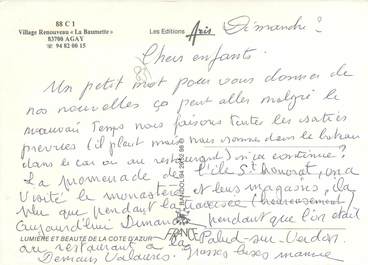 88 C 1
Village Renouveau « La Baumette »
83700 AGAY
☎ 94 82 00 15
Les Editions Aris
Dimanche ?
Chers enfants.
Un petit mot pour vous donner de
nos nouvelles ça peut aller malgré le
mauvais temps nous faisons toutes les sorties
prevues (il pleut mais nous sommes dans le bateau
dans le car ou au restaurant) si ça continue ?
La promenade de l'île St Honorat, on a
visité le monastère et leurs magasins, la
pluie que pendant la traversée (heureusement)
Aujourd'hui Dimanche pendant que l'on était
au restaurant à la Palud-sur-Verdon.
Demain Valauris. Grosses bises mamie
LUMIÈRE ET BEAUTÉ DE LA COTE D'AZUR
FRANCE